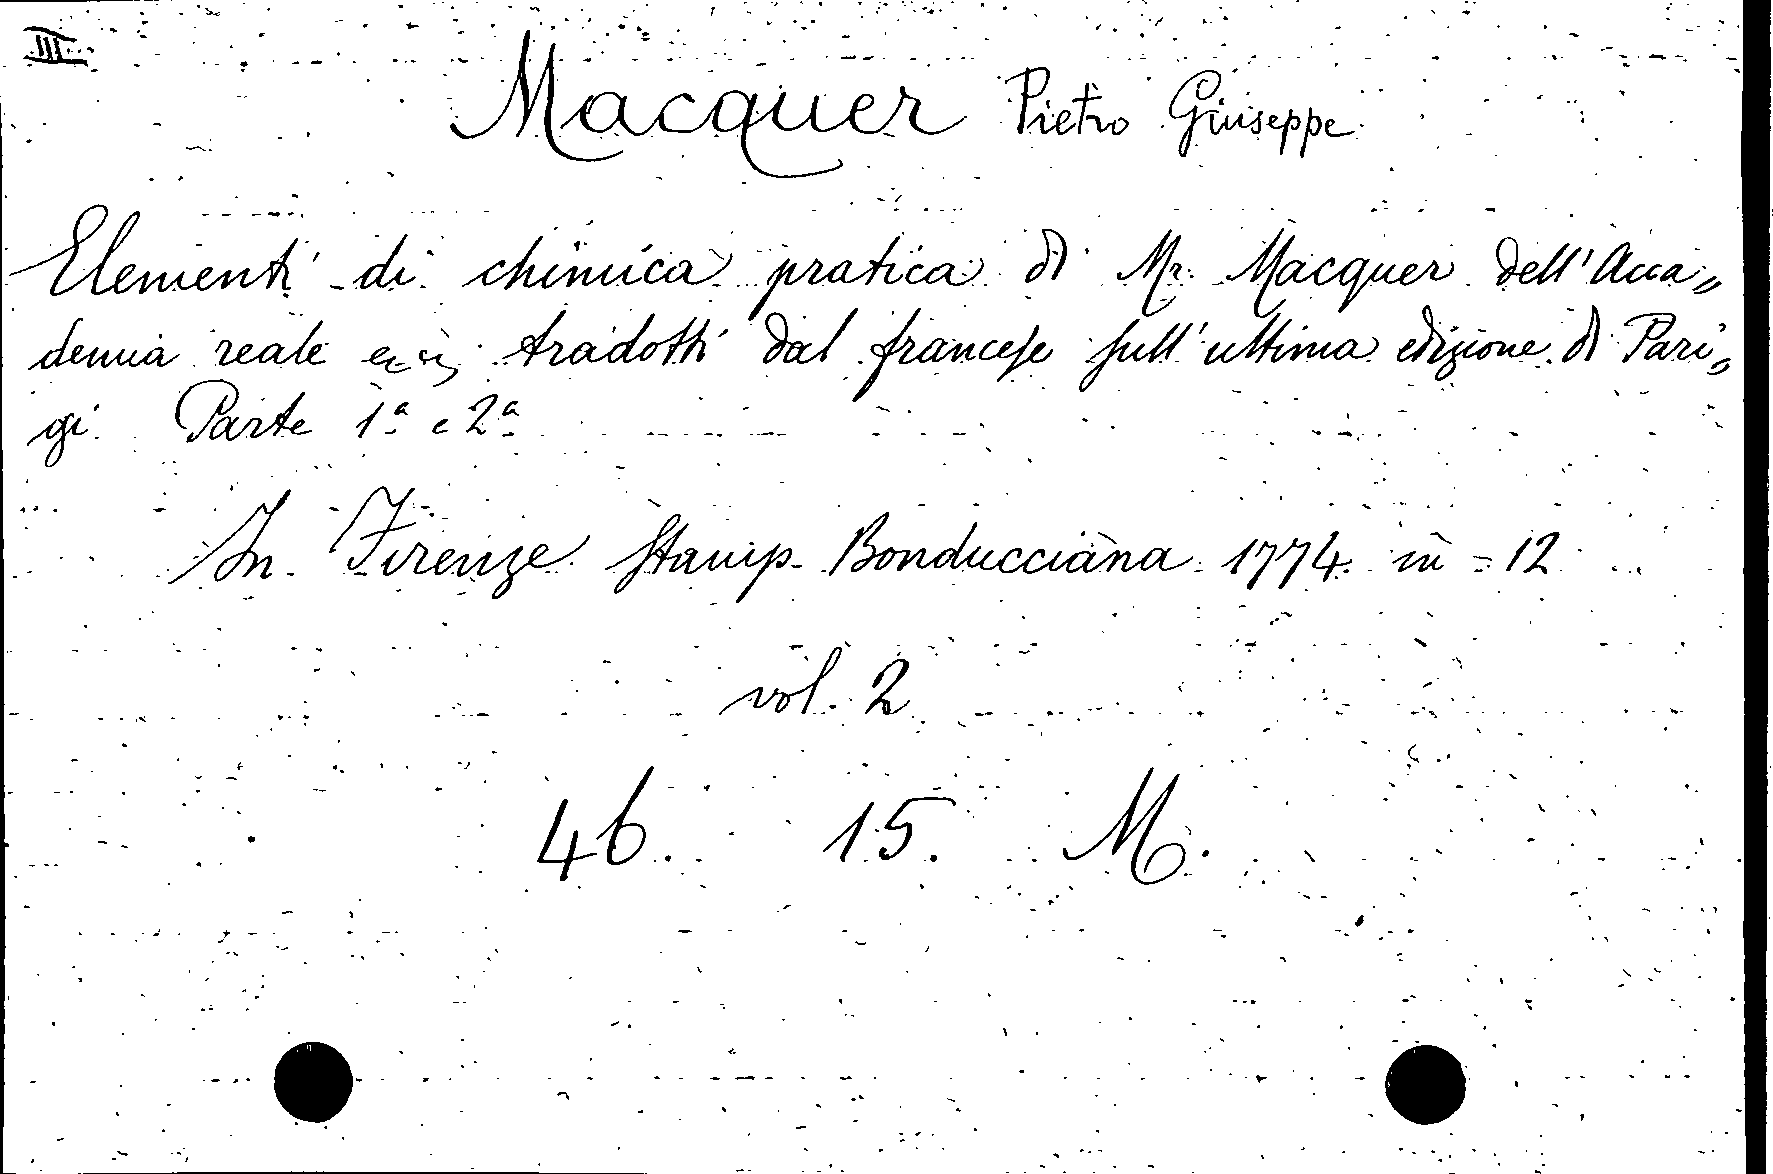 III
Macquer Pietro Giuseppe
Elementi di chimica pratica di Mr. Macquer dell' Acca„
demia reale tradotti dal francese sull' ultima edizione di Pari„
gi. Parte 1ª e 2ª
In Firenze Stamp. Bonducciana 1774 in = 12
vol. 2
46. 15. M.